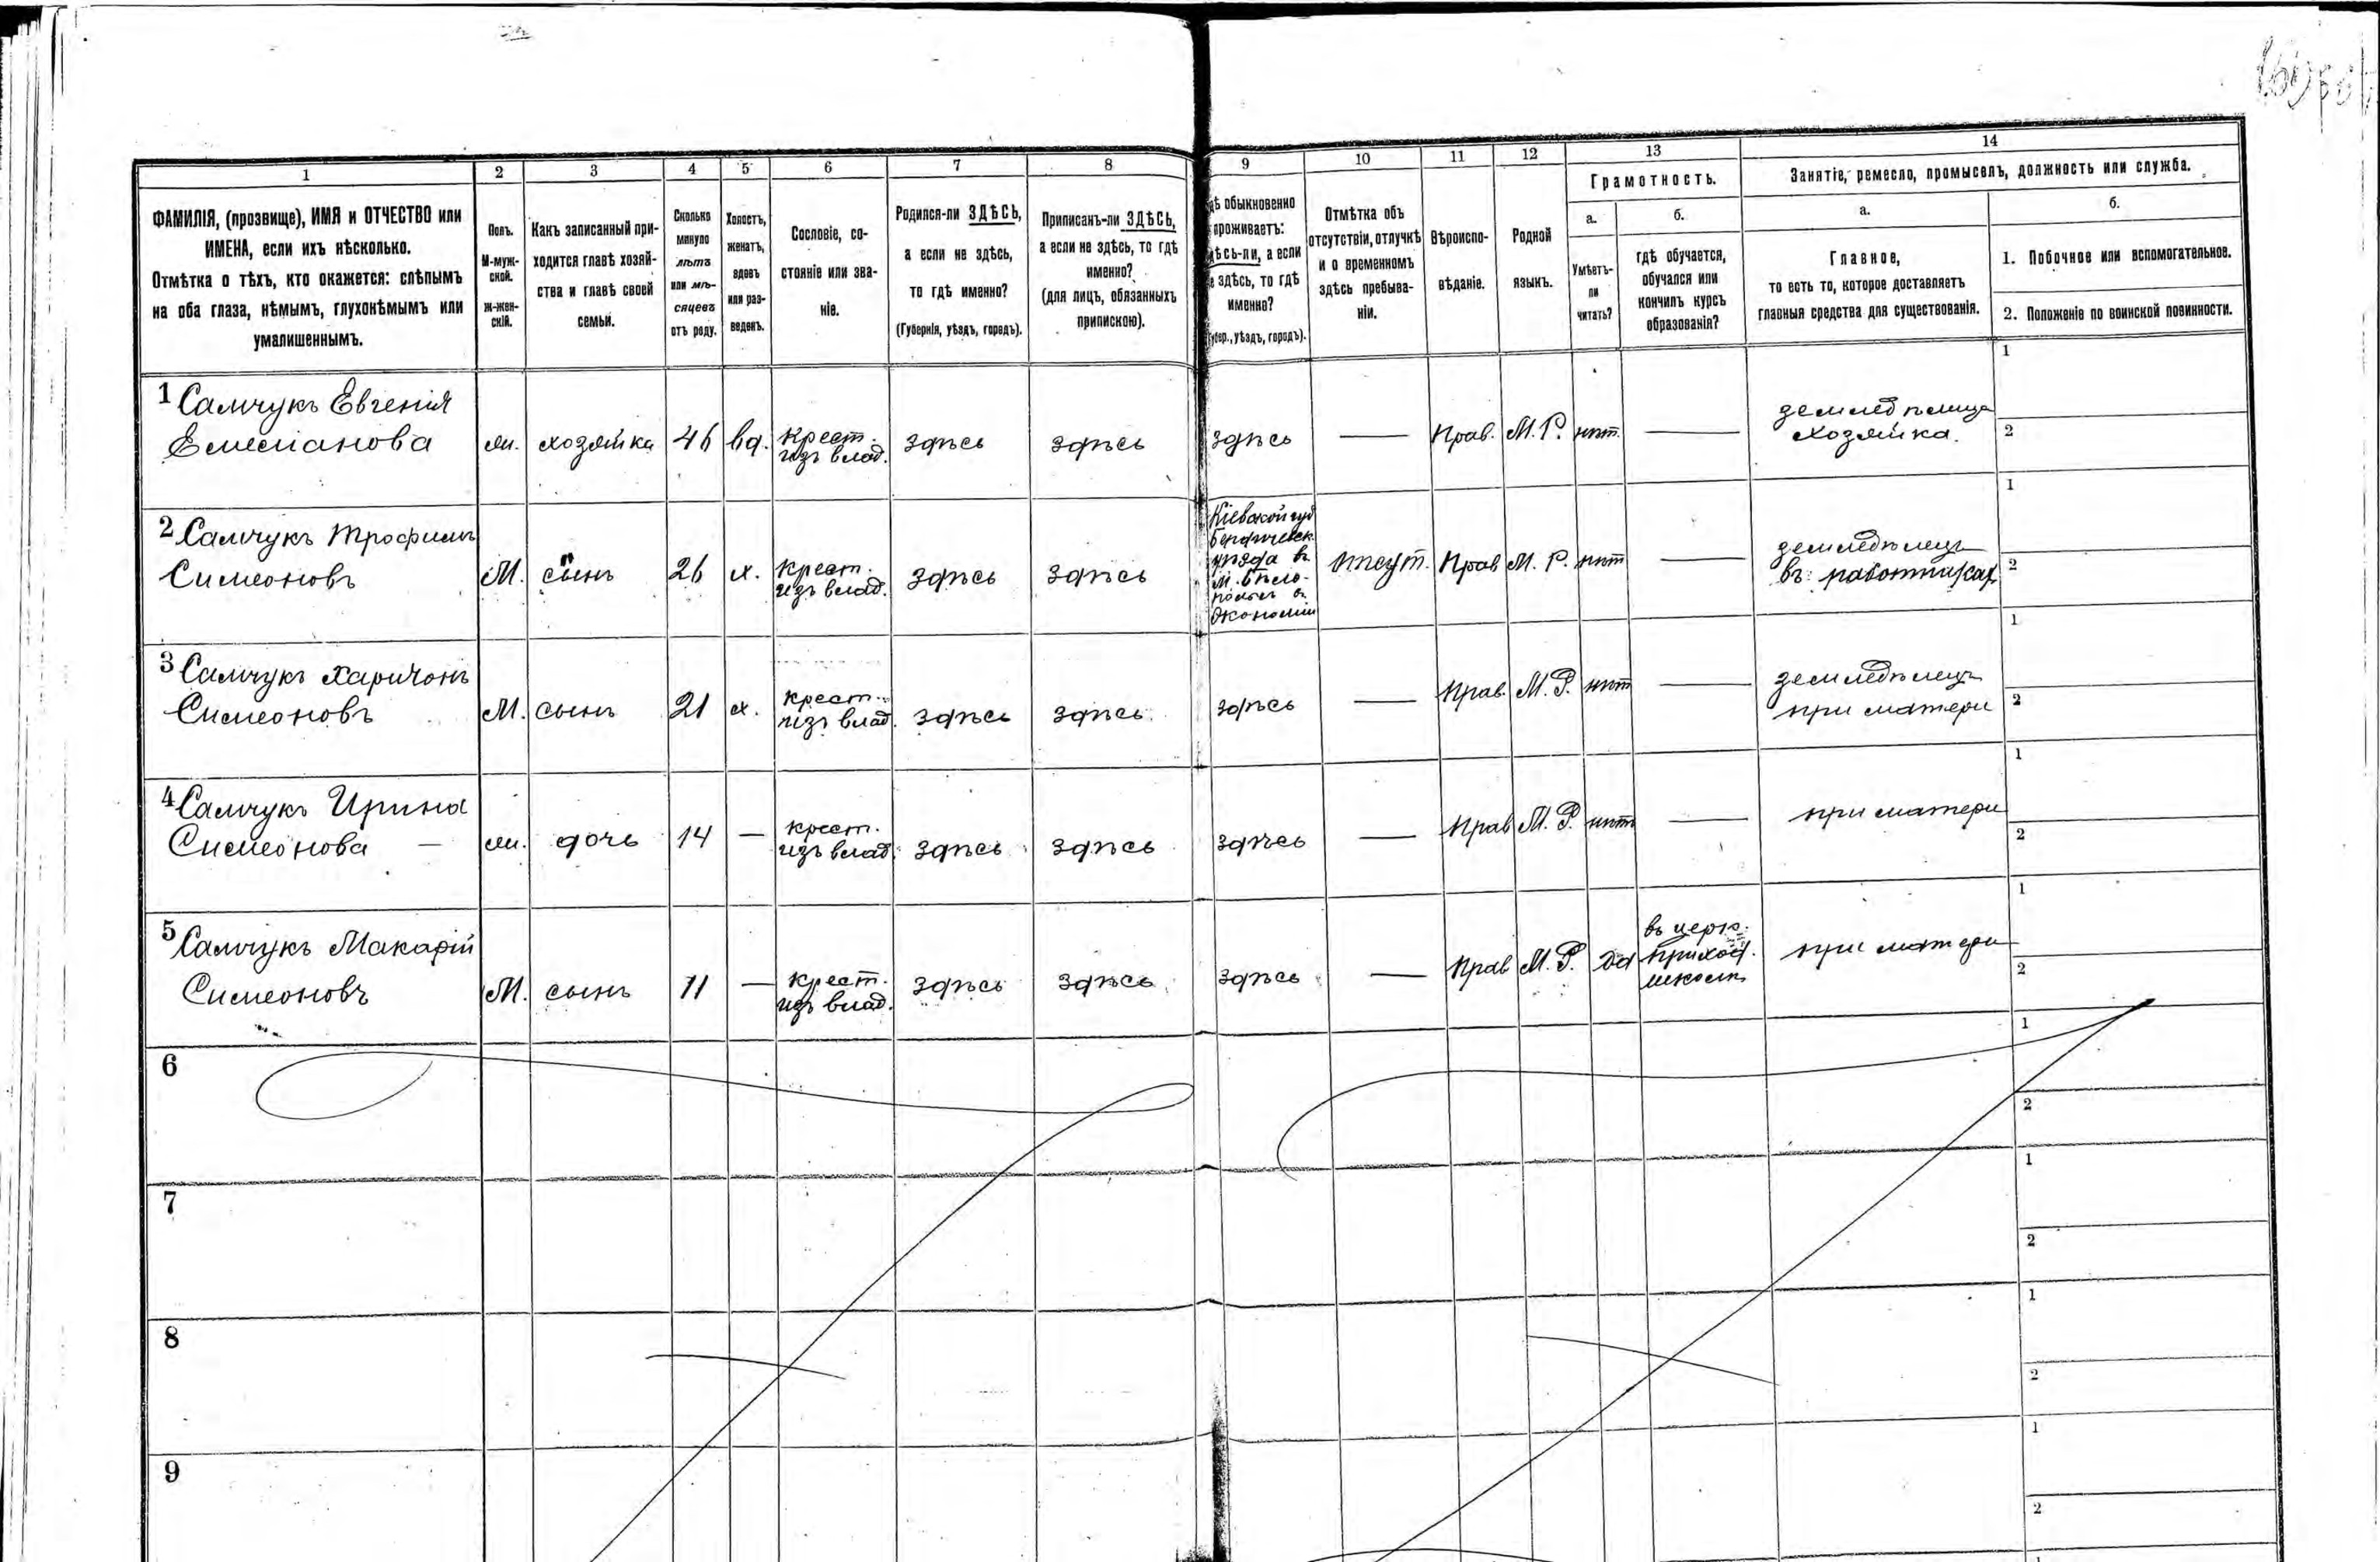 1
2
3
4
5
6
7
8
9
10
11
12
13
14
ФАМИЛІЯ, (прозвище), ИМЯ и ОТЧЕСТВО или
ИМЕНА, если ихъ нѣсколько.
Отмѣтка о тѣхъ, кто окажется: слѣпымъ
на оба глаза, нѣмымъ, глухонѣмымъ или
умалишеннымъ.
Полъ.
М-муж-
ской.
ж-жен-
скій.
Какъ записанный при-
ходится главѣ хозяй-
ства и главѣ своей
семьи.
Сколько
минуло
лѣтъ
или мѣ-
сяцевъ
отъ роду.
Холостъ,
женатъ,
вдовъ
или раз-
веденъ.
Сословіе, со-
стояніе или зва-
ніе.
Родился-ли ЗДѢСЬ,
а если не здѣсь,
то гдѣ именно?
(Губернія, уѣздъ, городъ).
Приписанъ-ли ЗДѢСЬ,
а если не здѣсь, то гдѣ
именно?
(для лицъ, обязанныхъ
припискою).
дѣ обыкновенно
проживаетъ:
здѣсь-ли, а если
не здѣсь, то гдѣ
именно?
(Губер., уѣздъ, городъ).
Отмѣтка объ
отсутствіи, отлучкѣ
и о временномъ
здѣсь пребыва-
ніи.
Вѣроиспо-
вѣданіе.
Родной
языкъ.
Грамотность.
а.
Умѣетъ-
ли
читать?
б.
гдѣ обучается,
обучался или
кончилъ курсъ
образованія?
Занятіе, ремесло, промыселъ, должность или служба.
а.
Главное,
то есть то, которое доставляетъ
главныя средства для существованія.
б.
1. Побочное или вспомогательное.
2. Положеніе по воинской повинности.
1 Самчукъ Евгенія
Емеліанова
ж.
хозяйка
46
вд.
крест.
изъ влад.
здѣсь
здѣсь
здѣсь
—
Прав.
М. Р.
нѣт.
—
земледѣлица
хозяйка.
1
2
2 Самчукъ Трофимъ
Симеоновъ
М.
сынъ
26
х.
крест.
изъ влад.
здѣсь
здѣсь
Кіевской губ
Бердичевск
уѣзда въ
м. Бѣло-
польи въ
экономіи
отсут.
Прав
М. Р.
нѣт
—
земледѣлецъ
въ работникахъ
1
2
3 Самчукъ Харитонъ
Симеоновъ
М.
сынъ
21
х.
крест.
изъ влад.
здѣсь
здѣсь
здѣсь
—
Прав.
М. Р.
нѣт
—
земледѣлецъ
при матери
1
2
4 Самчукъ Ирина
Симеонова —
ж.
дочь
14
—
крест.
изъ влад.
здѣсь
здѣсь
здѣсь
—
Прав
М. Р.
нѣт
—
при матери
1
2
5 Самчукъ Макарій
Симеоновъ
М.
сынъ
11
—
крест.
изъ влад.
здѣсь
здѣсь
здѣсь
—
Прав
М. Р.
да
въ церк.
приход.
школѣ
при матери
1
2
6
1
2
7
1
2
8
1
2
9
1
2